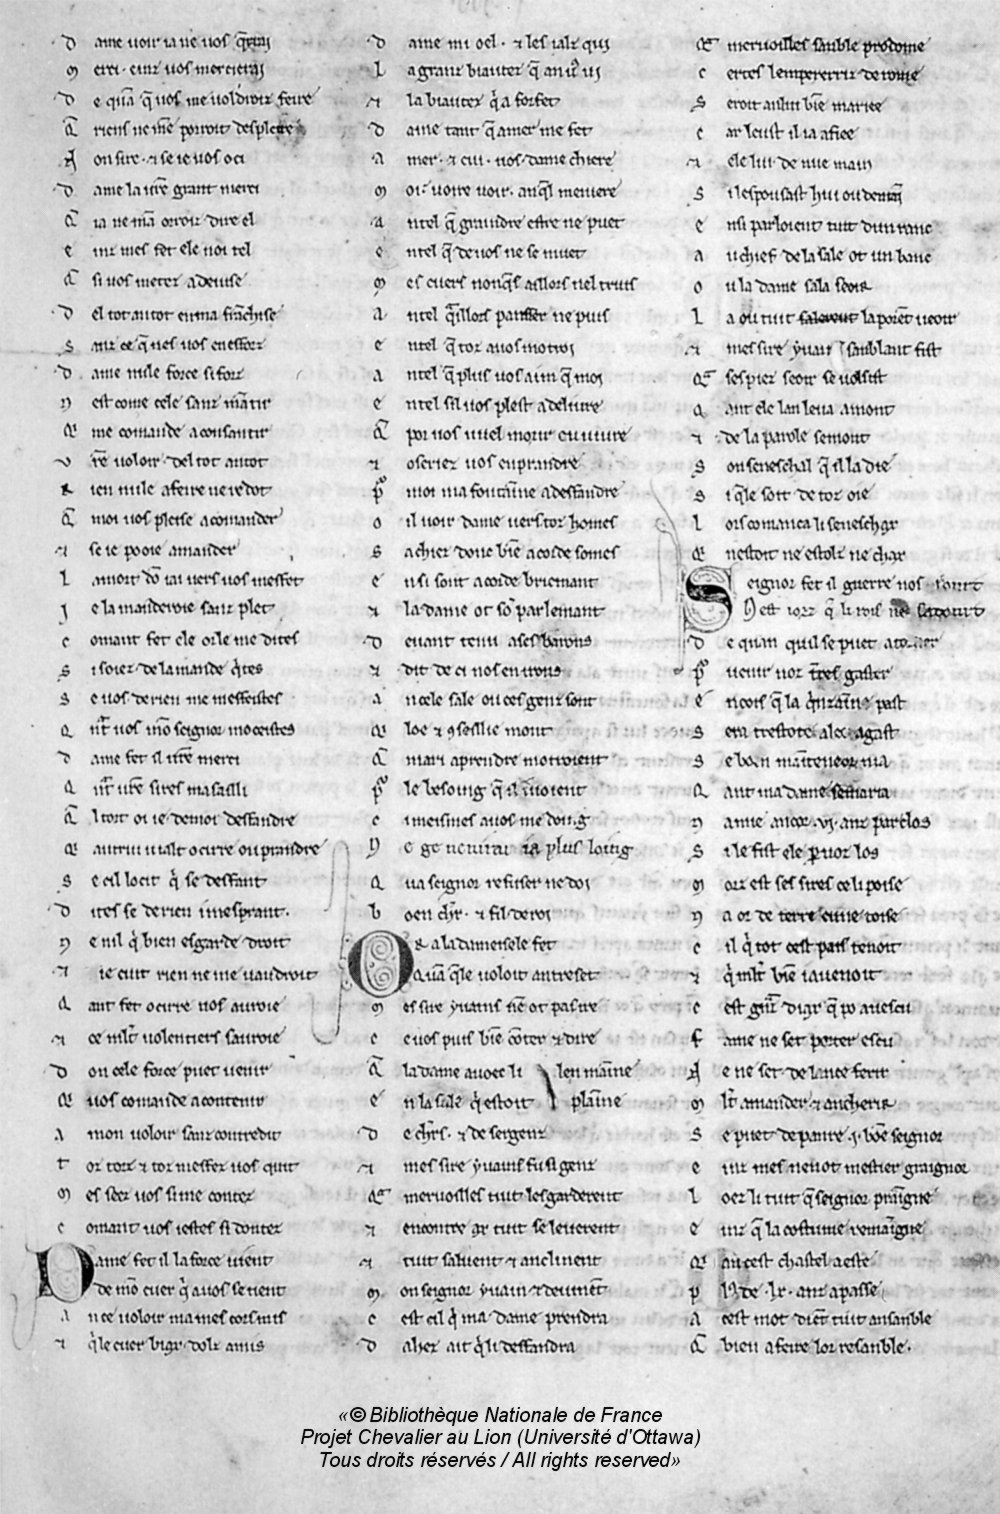 D ame voir ia ne vos q̄rrai
M erci · einz vos mercierai
D e quā q̄ vos me voldroiz feire
Q̄ riens ne mē porroit desplere
N on sire · ⁊ se ie vos oci
D ame la vr̄e grant merci
Q̄ ia ne mā orroiz dire el
E inz mes fet ele noi tel
Q̄ si vos metez a devise
D el tot an tot en ma frāchise
S anz ce q̄ nes vos en efforz
D ame nule force si forz
N est come cele sanz mātir
Q̄ me comande a consantir
V r̄e voloir · del tot an tot
R ien nule a feire ne redot
Q̄ moi vos pleise a comander
⁊ se ie pooie amander
L a mort dō iai vers vos mesfet
J e la manderoie sanz plet
C omant fet ele or le me dites
S i soiez de la mande q̇tes
S e vos de rien me mesfeistes
Q nt̄ vos mō seignor moceistes
D ame fet il vr̄e merci
Q nt̄ vr̄e sires masailli
Q̄ l tort oi ie de moi desfandre
Q̄ autrui vialt ocirre ou prandre
S e cil locit q̇ se desfant
D ites se de rien i mesprant .
N enil q̇ bien esgarde droit
⁊ ie cuit rien ne me vaudroit
Q ant fet ocirre vos avroie
⁊ ce ml̄t volentiers savroie
D on cele force puet venir
Q̄ vos comande a consentir
A mon voloir sanz contredit
T oz torz ⁊ toz mesfez vos quit
M es seez vos si me contez
C omant vos iestes si dontez
D ame fet il la force vient
De mō cuer q̇ a vos se tient
A n ce voloir ma mes cors mis
⁊ q̇ le cuer biax dolz amis
D ame mi oel · ⁊ les ialz qui
L a granz biautez q̄ an vos vi
⁊ la biautez q̇ a forfet
D ame tant q̄ amer me fet
A mer · ⁊ cui · vos dame chiere
M oi · voire voir · an q̄l meniere
A n tel q̄ graindre estre ne puet
E n tel q̄ de vos ne se muet
M es cuers nonq̄s aillors nel truis
A n tel q̄ aillors pansser ne puis
E n tel q̄ toz a vos motroi
A n tel q̄ plus vos aim q̄ moi
E n tel sil vos plest a delivre
Q̄ por vos vuel morir ou vivre
⁊ oseriez vos enprandre
P̱ moi ma fontainne a desfandre
O il voir dame vers toz homes
S achiez donc bn̄e acorde somes
E nsi sont acorde briemant
⁊ la dame ot sō parlemant
D evant tenu a ses barons
⁊ dit de ci nos en irons
A n cele sale ou ces genz sont
Q̄ loe ⁊ ꝯseillie mont
Q̄ mari a prendre motroient
P̱ le besoing q̄ il i voient
C i meismes a vos me doing
N e ge nen irai ia plus loing
Q ua seignor refuser ne doi
B oen chr̄ · ⁊ fil de roi
O r a la dameisele fet
Q̄ uā q̄le voloit antreset
M es sire yvains nē ot pas ire
C e vos puis bn̄e cōter ⁊ dire
Q̄ la dame avoec li len mainne
E n la sale q̇ estoit plainne
D e chr̄s · ⁊ de sergenz
⁊ mes sire yvains fu si genz
Q̄ a mervoilles tuit lesgarderent
⁊ encontre ax tuit se leverent
⁊ tuit saluent ⁊ anclinent
M on seignor yvain ⁊ devinēt
C est cil q̇ ma dame prendra
D ahez ait q̇ li desfandra
Q̄ a mervoilles sanble prodome
C ertes lempererriz de rome
S eroit an lui bn̄e mariee
C ar leust il ia afiee
⁊ ele lui de nue main
S i lespousast hui ou demain
E nsi parloient tuit dun ranc
A u chief de la sale ot un banc
O u la dame sala seoir
L a ou tuit la porēt veoir
⁊ mes sire yvain sanblant fist
Q̄ a ses piez seoir se volsist
Q ant ele lan leva amont
⁊ de la parole semont
S on seneschal q̄ il la die
S i q̄le soit de toz oie
L ors comanca li seneschax
Q̄ nestoit ne estolz ne chax
S eignor fet il guerre nos sourt
N est iorz q̄ li rois ne satourt
D e quan quil se puet atorner
P̱ venir noz tr̄res gaster
E ncois q̄ la qn̄zainne past
S era trestote alee a gast
S e boen mainteneor nia
Q ant ma dame se maria
N a mie ancor .vi. anz parclos
S i le fist ele par voz los
M orz est ses sires ce li poise
N a or de terre cune toise
C il q̇ tot cest pais tenoit
⁊ q̇ ml̄t bn̄e i avenoit
C est granz diax q̄ po a vescu
F ame ne set porter escu
N e ne set de lance ferir
M lt̄ amander ⁊ ancherir
S e puet de panre .i. boē seignor
E inz mes nen ot mestier graignor
L oez li tuit q̄ seignor praigne
E inz q̄ la costume remaigne
Q̄ an cest chastel a este
P lꝰ de .lx. anz a passe
A cest mot dient tuit ansanble
Q̄ bien a feire lor resanble .
«© Bibliothèque Nationale de France
Projet Chevalier au Lion (Université d'Ottawa)
Tous droits réservés / All rights reserved»